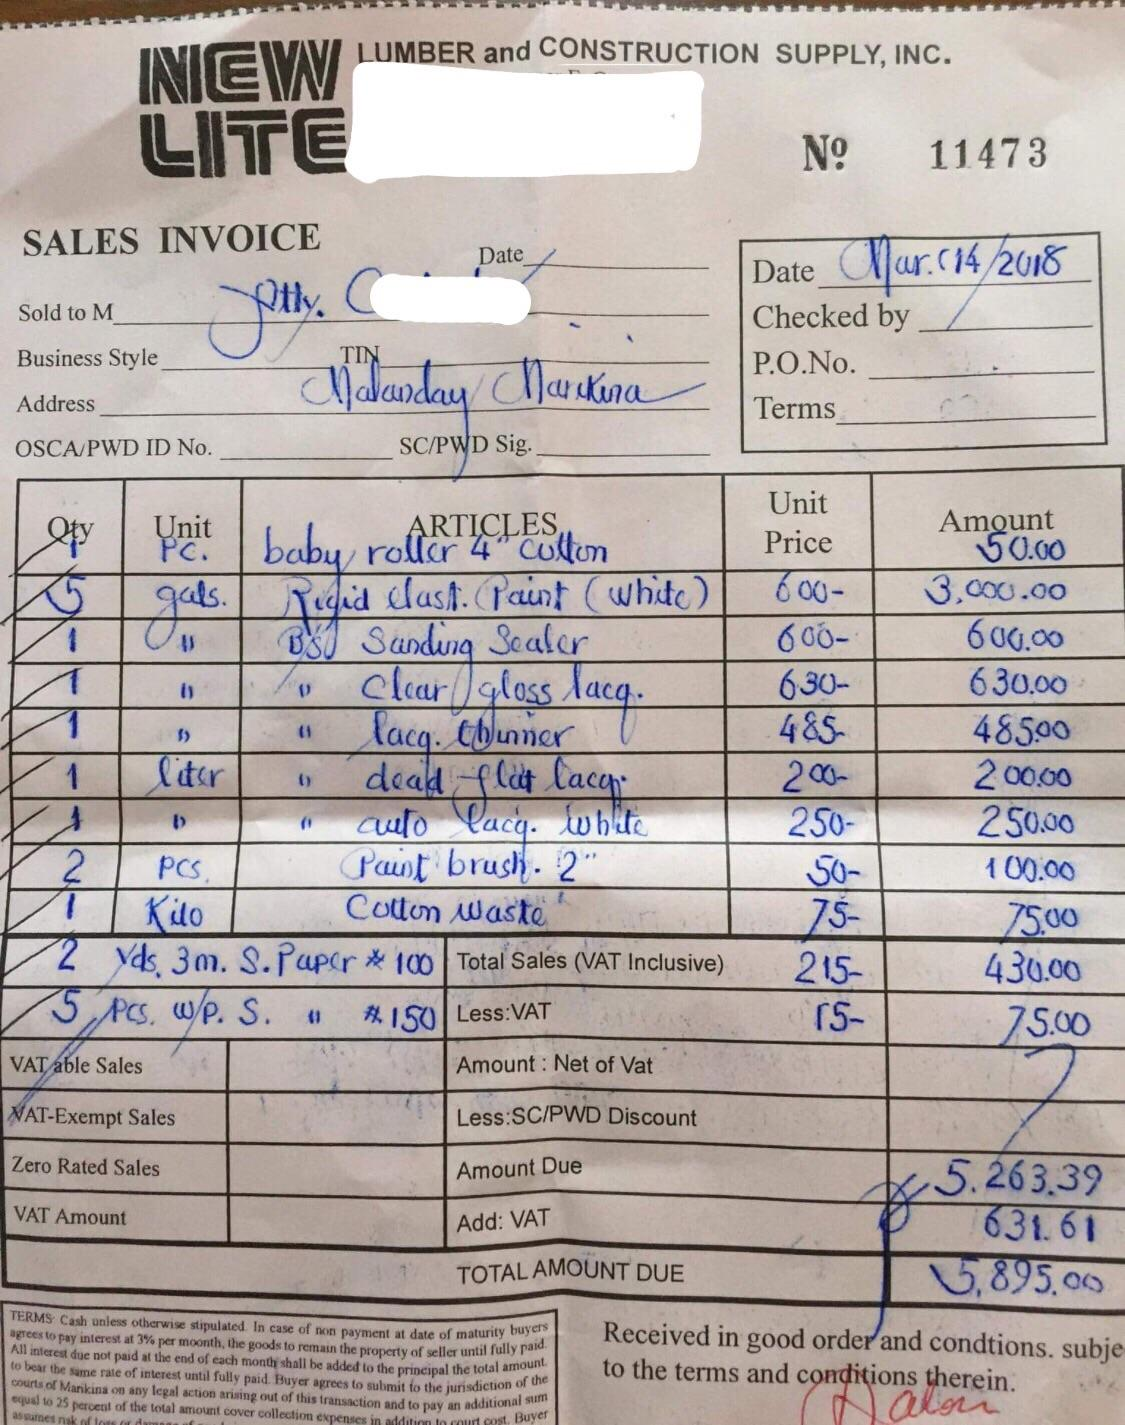 NEW LITE LUMBER and CONSTRUCTION SUPPLY, INC.
Nº 11473
SALES INVOICE
Date
Sold to M Atty. C
Business Style TIN
Address Malanday Marikina
OSCA/PWD ID No. SC/PWD Sig.
Date Mar. 14/2018
Checked by
P.O.No.
Terms
Qty Unit ARTICLES Unit Price Amount
1 Pc. baby roller 4" cotton 50.00
5 gals. Rigid elast. Paint (White) 600- 3,000.00
1 " BSJ Sanding Sealer 600- 600.00
1 " " Clear gloss lacq. 630- 630.00
1 " " lacq. thinner 485- 485.00
1 liter " dead flat lacq. 200- 200.00
1 " " auto lacq. White 250- 250.00
2 pcs. Paint brush. 2" 50- 100.00
1 Kilo Cotton waste 75- 75.00
2 yds. 3m. S. Paper # 100 Total Sales (VAT Inclusive) 215- 430.00
5 pcs. w/p. S. " # 150 Less:VAT 15- 75.00
VATable Sales Amount : Net of Vat
VAT-Exempt Sales Less:SC/PWD Discount
Zero Rated Sales Amount Due 5,263.39
VAT Amount Add: VAT 631.61
TOTAL AMOUNT DUE 5,895.00
TERMS: Cash unless otherwise stipulated. In case of non payment at date of maturity buyers
agrees to pay interest at 3% per moonth, the goods to remain the property of seller until fully paid.
All interest due not paid at the end of each month shall be added to the principal the total amount.
to bear the same rate of interest until fully paid. Buyer agrees to submit to the jurisdiction of the
courts of Marikina on any legal action arising out of this transaction and to pay an additional sum
equal to 25 percent of the total amount cover collection expenses in addition to court cost. Buyer
assumes risk of loss or
Received in good order and condtions. subje
to the terms and conditions therein.